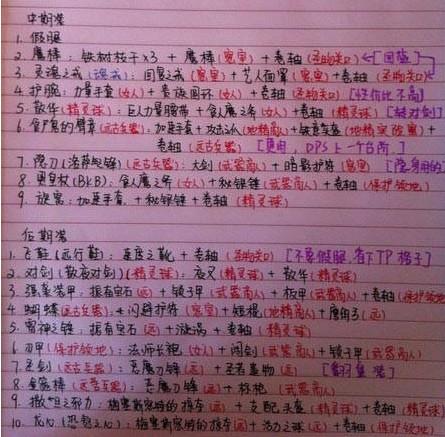 中期装
1. 假腿
2. 魔棒：铁树枝干x3 + 魔棒(密室) + 卷轴(圣物关口) [回蓝]
3. 灵魂之戒(魂戒)：回复戒(密室) + 艺人面罩(密室) + 卷轴(圣物关口)
4. 护腕：力量手套(女人) + 贵族圆环(女人) + 卷轴(圣物关口) [性价比不高]
5. 散华(精灵球)：巨人力量腰带 + 食人魔之斧(女人) + 卷轴(精灵球) [缺对剑]
6. 食尸鬼的臂章(远古兵器)：加速手套 + 攻击之爪(地精商人) + 铁意头盔(地精实验室) +
卷轴(远古兵器) [DPS上一个台阶]
7. 隐刀(洛萨之锋)(远古兵器)：大剑(武器商人) + 暗影护符(密室) [隐身用的]
8. 黑皇杖(BKB)：食人魔之斧(女人) + 秘银锤(武器商人) + 卷轴(保护领地)
9. 旋雷：加速手套 + 秘银锤 + 卷轴(精灵球)
后期装
1. 飞鞋(远行鞋)：速度之靴 + 卷轴(圣物关口) [不要假腿，省下TP格子]
2. 对剑(散夜对剑)(精灵球)：夜叉(精灵球) + 散华(精灵球)
3. 强袭装甲：振奋宝石(远) + 锁子甲(武器商人) + 板甲(武器商人) + 卷轴(保护领地)
4. 蝴蝶(远古兵器)：闪避护符(密室) + 短棍(地精商人) + 鹰角弓(远)
5. 雷神之锤：振奋宝石(远) + 漩涡 + 卷轴(精灵球)
6. 刃甲(保护领地)：法师长袍(女人) + 阔剑(武器商人) + 锁子甲(武器商人)
7. 圣剑(远古兵器)：恶魔刀锋(远) + 圣者遗物(远)
8. 金箍棒(远古兵器)：恶魔刀锋(远) + 标枪(武器商人)
9. 撒旦之邪力：梅肯斯克姆的掠夺(远) + 支配头盔(精灵球) + 卷轴(精灵球)
10. 龙心(恐鳌之心)：梅肯斯克姆的掠夺(远) + 活力之球(远) + 卷轴(保护领地)